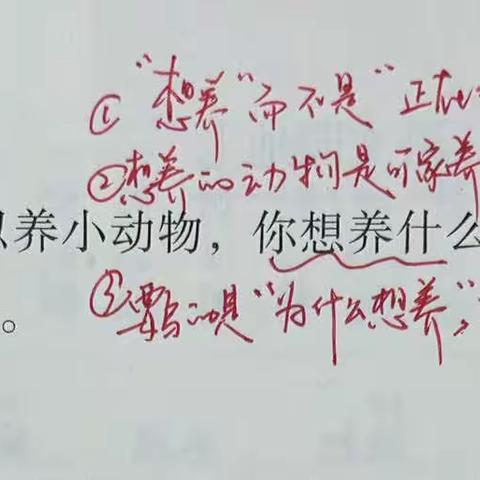 ①“想养”而不是“正在
②想养的动物是可家养
养小动物，你想养什么
③要写的是“为什么想养”，
。